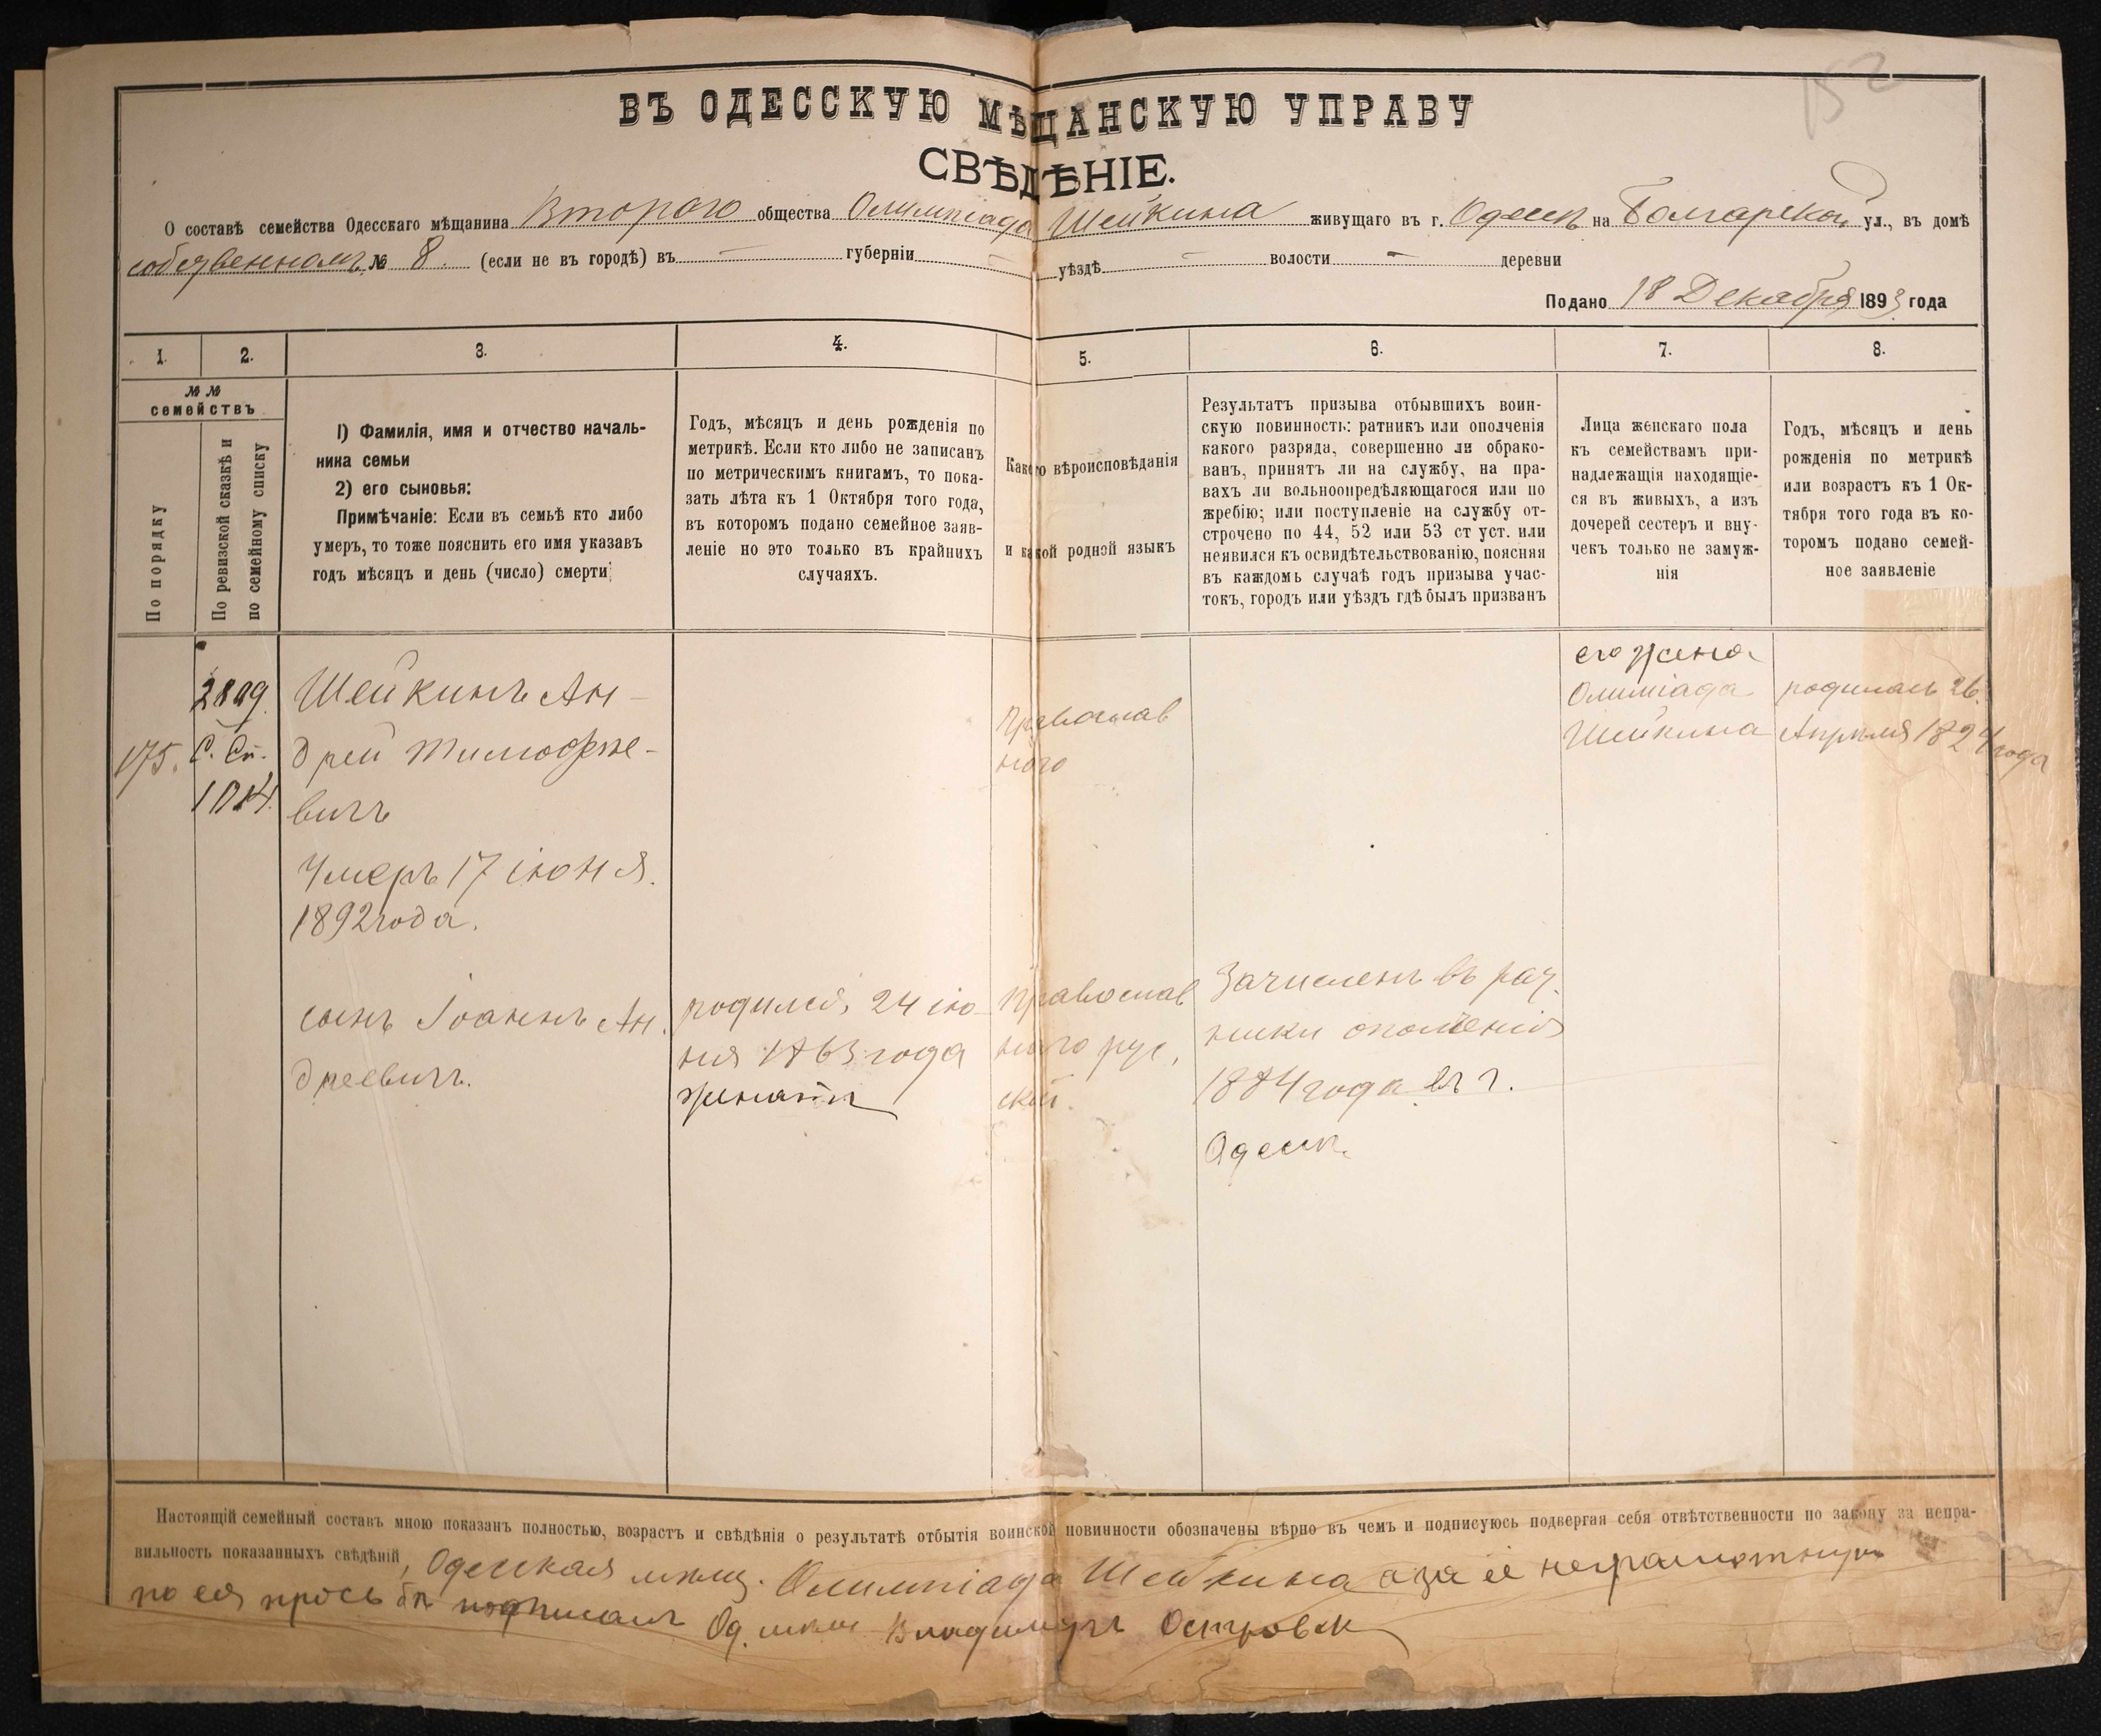 152
ВЪ ОДЕССКУЮ МѢЩАНСКУЮ УПРАВУ
СВѢДѢНІЕ.
О составѣ семейства Одесскаго мѣщанина Второго общества Олимпіада Шейкина живущаго въ г. Одессѣ на Болгарской ул., въ домѣ
собственномъ № 8. (если не въ городѣ) въ — губерніи — уѣздѣ — волости — деревни
Подано 18 Декабря 1893 года
1.
2.
3.
4.
5.
6.
7.
8.
№ №
семействъ
По порядку
По ревизской сказкѣ и
по семейному списку
1) Фамилія, имя и отчество началь-
ника семьи
2) его сыновья:
Примѣчаніе: Если въ семьѣ кто либо
умеръ, то тоже пояснить его имя указавъ
годъ мѣсяцъ и день (число) смерти;
Годъ, мѣсяцъ и день рожденія по
метрикѣ. Если кто либо не записанъ
по метрическимъ книгамъ, то пока-
зать лѣта къ 1 Октября того года,
въ которомъ подано семейное заяв-
леніе но это только въ крайнихъ
случаяхъ.
Какого вѣроисповѣданія
и какой родной языкъ
Результатъ призыва отбывшихъ воин-
скую повинность: ратникъ или ополченія
какого разряда, совершенно ли обрако-
ванъ, принятъ ли на службу, на пра-
вахъ ли вольноопредѣляющагося или по
жребію; или поступленіе на службу от-
строчено по 44, 52 или 53 ст уст. или
неявился къ освидѣтельствованію, поясняя
въ каждомъ случаѣ годъ призыва учас-
токъ, городъ или уѣздъ гдѣ былъ призванъ
Лица женскаго пола
къ семействамъ при-
надлежащія находящіе-
ся въ живыхъ, а изъ
дочерей сестеръ и вну-
чекъ только не замуж-
нія
Годъ, мѣсяцъ и день
рожденія по метрикѣ
или возрастъ къ 1 Ок-
тября того года въ ко-
торомъ подано семей-
ное заявленіе
175.
С. Сп.
Шейкинъ Ан-
дрей Тимофѣе-
вичъ
Умеръ 17 іюня.
1892 года.
Православ
ного
его жена
Олимпіада
Шейкина
родилась 26
Апрѣля 1824 года
сынъ Іоаннъ Ан.
дреевичъ.
родился, 24 ію-
ня 1863 года
женатъ
православ
ного рус,
ский.
Зачисленъ въ рат.
ники ополченія
1884 года въ г.
Одессѣ.
Настоящій семейный составъ мною показанъ полностью, возрастъ и свѣдѣнія о результатѣ отбытія воинской повинности обозначены вѣрно въ чемъ и подписуюсь подвергая себя отвѣтственности по закону за непра-
вильность показанныхъ свѣдѣній, Одесская мѣщ. Олимпіада Шейкина а за её неграмотную
по ея просьбѣ подписалъ Од. мѣщ Владимиръ